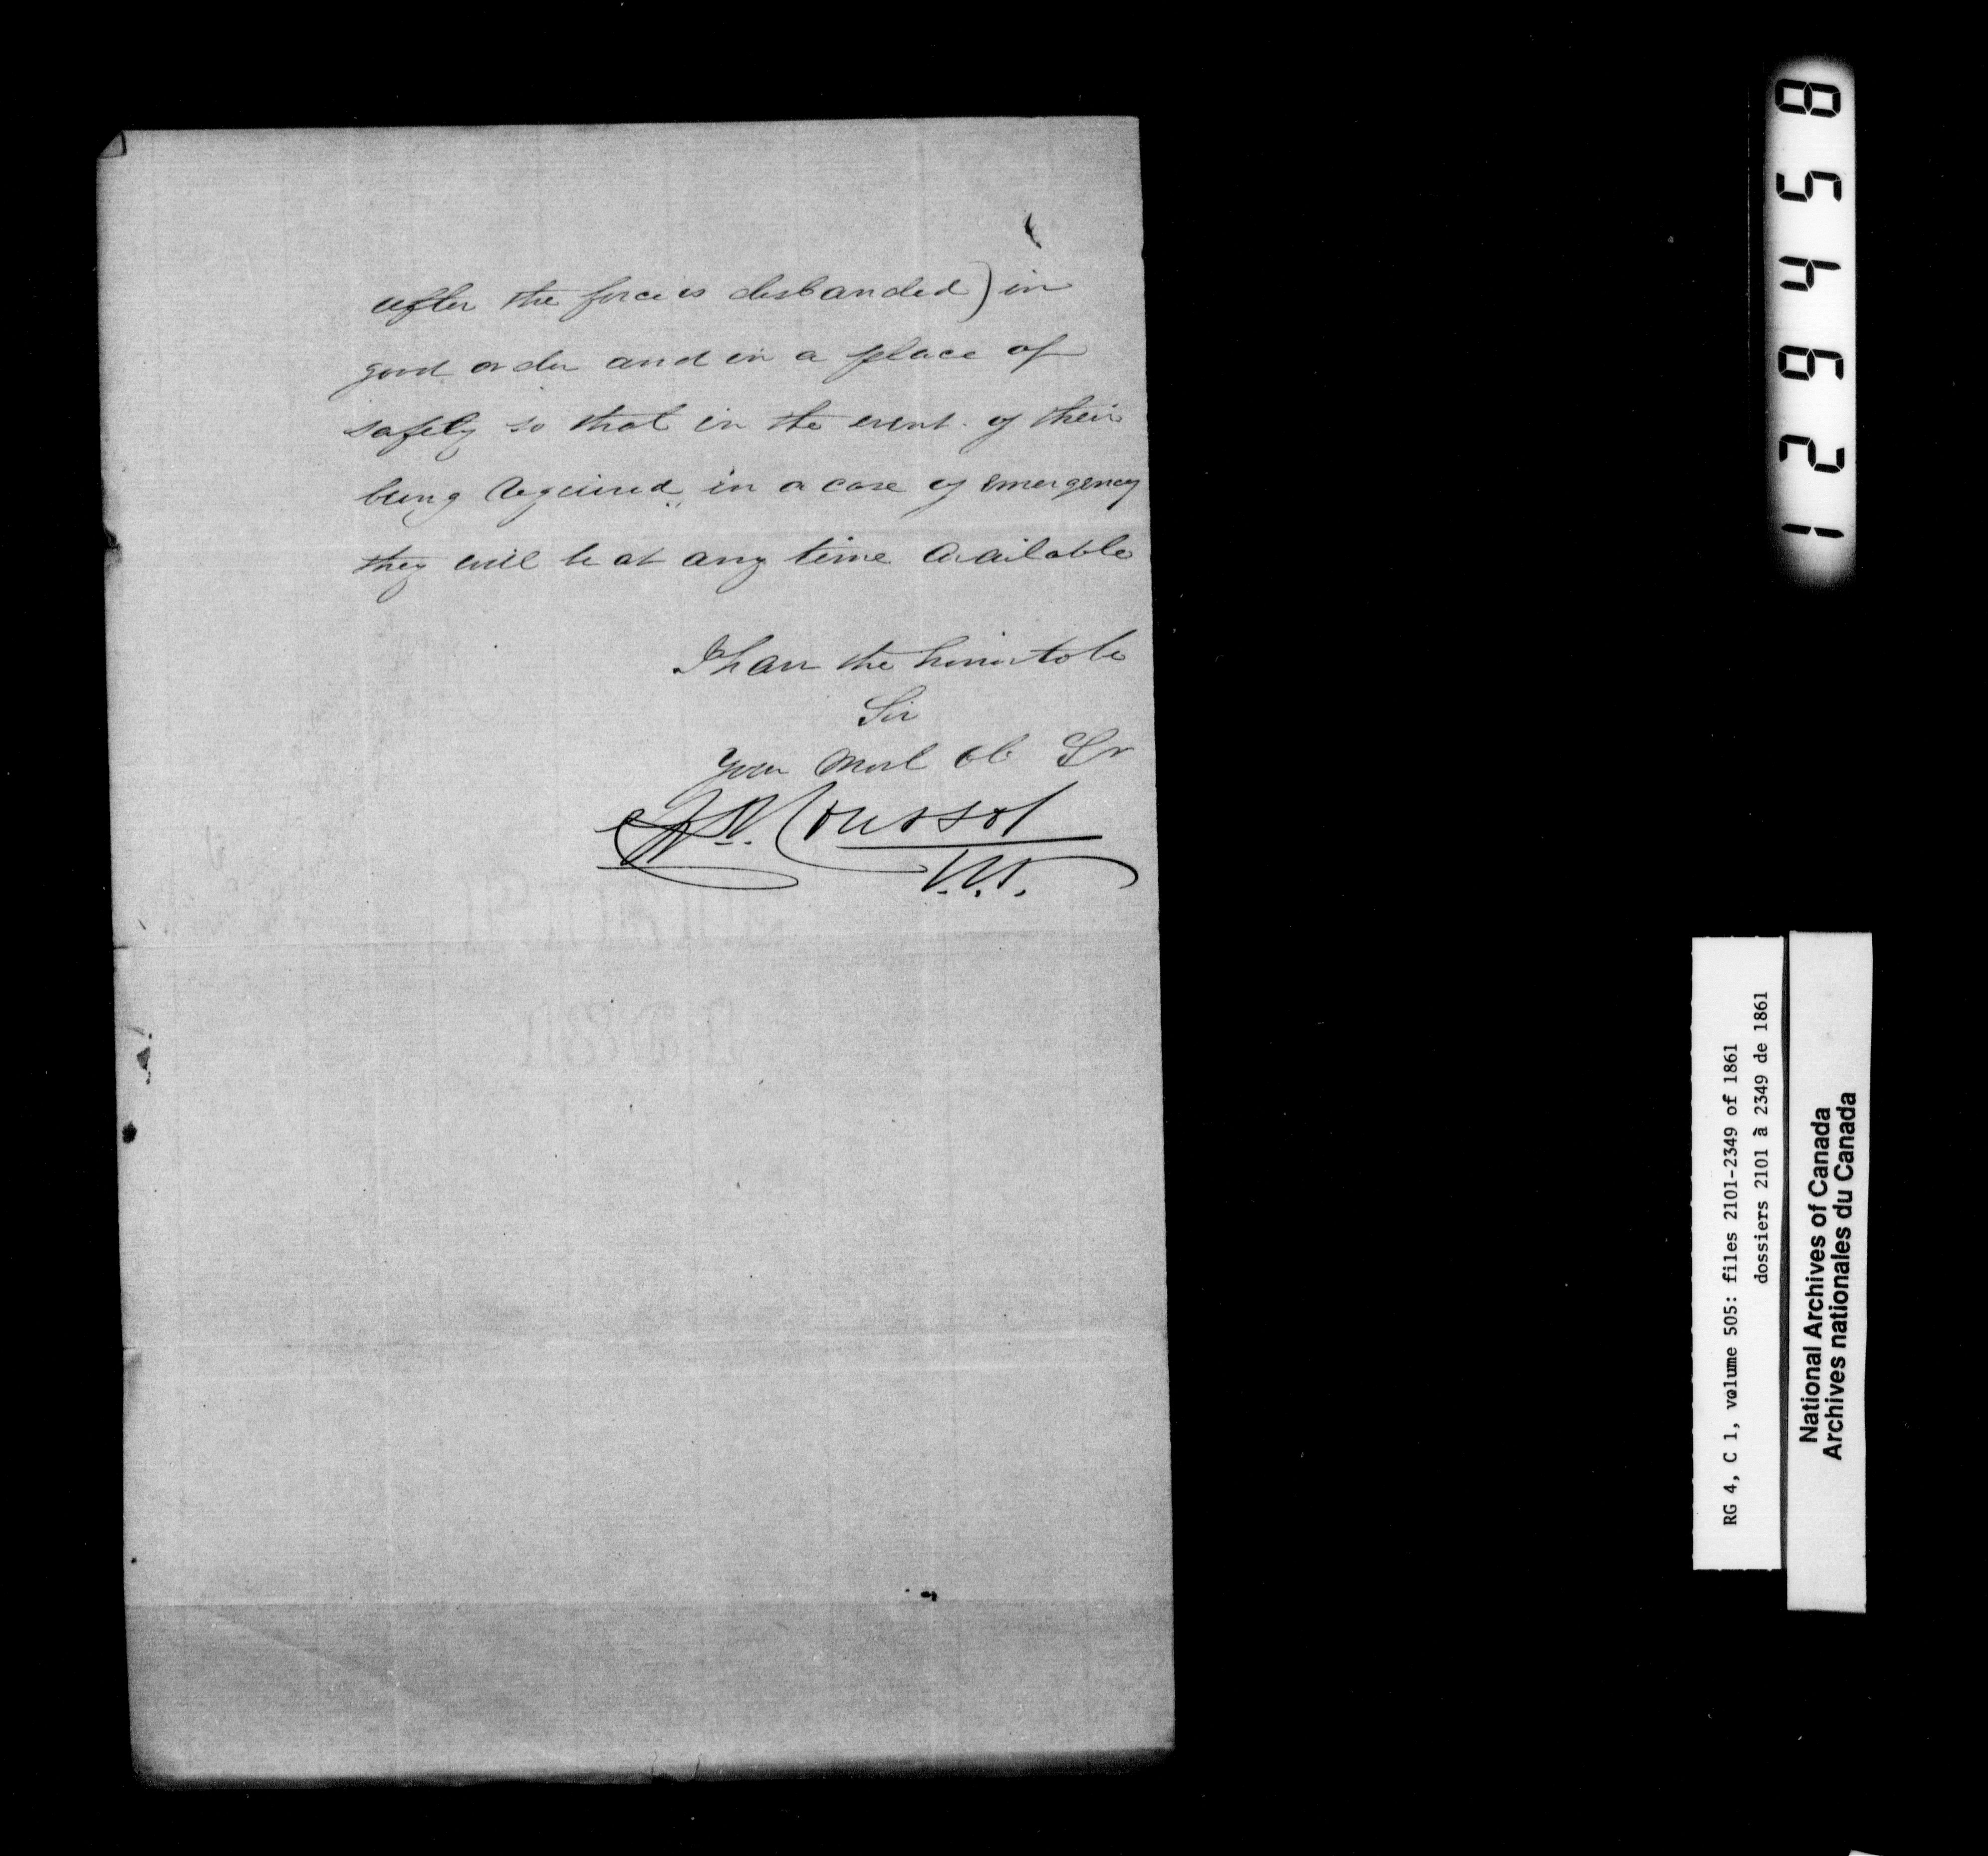 after the force is disbanded) in
good order and in a place of
safety so that in the event of their
being required, in a case of emergency
they will be at any time available
I have the honor to be
Sir
Your Most Ob Sr
Coursol
129458
RG 4, C 1, volume 505: files 2101-2349 of 1861
dossiers 2101 à 2349 de 1861
National Archives of Canada
Archives nationales du Canada